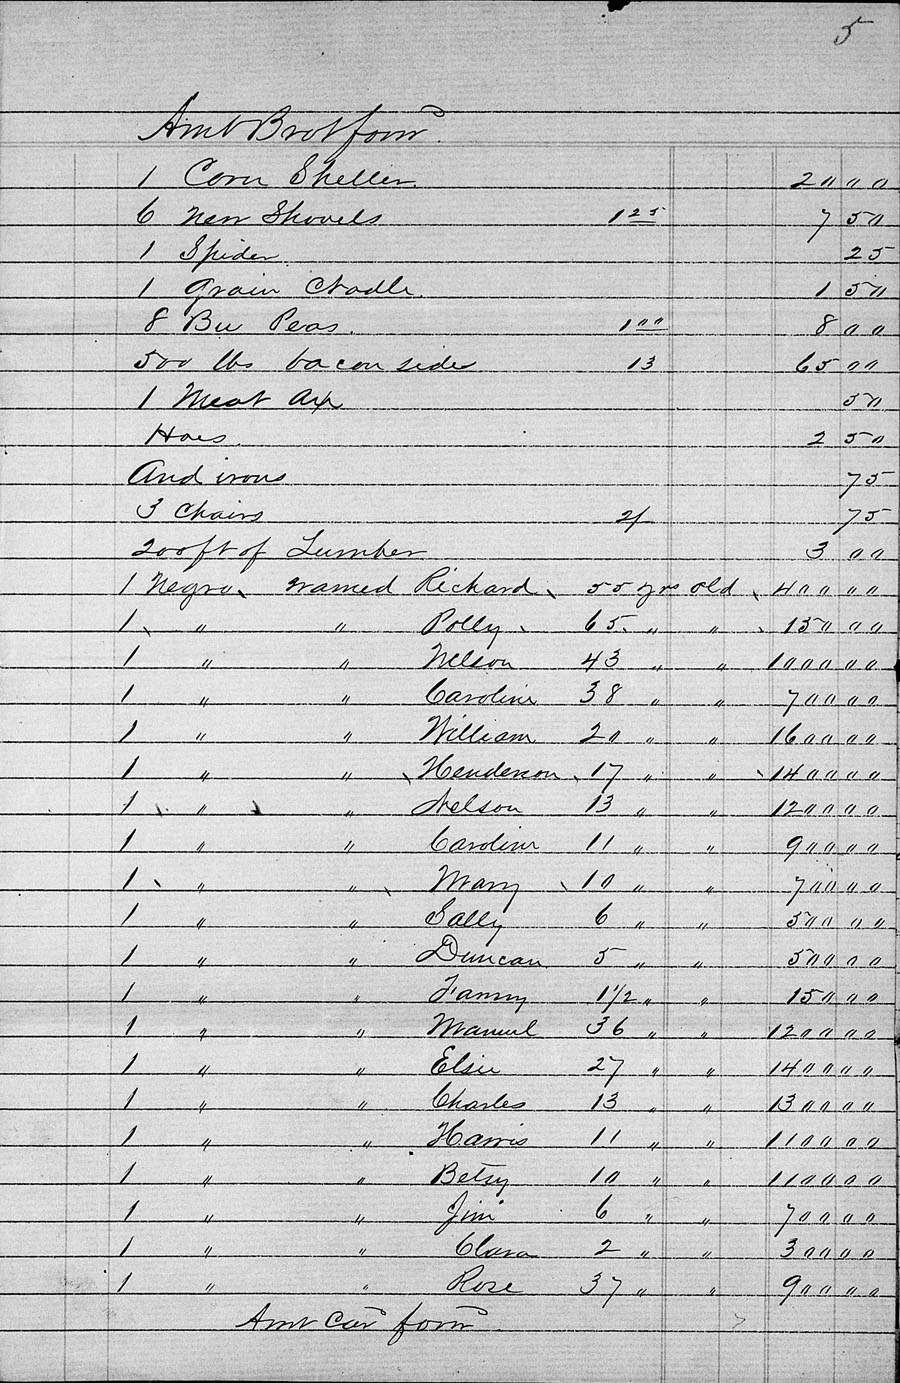 5
Amt Brot forw
1 Corn Sheller. 20 00
6 New Shovels 1 25 7 50
1 Spider 25
1 Grain Cradle. 1 50
8 Bu Peas. 1 00 8 00
500 lbs bacon side 13 65 00
1 Meat Axe 50
Hoes. 2 50
And irons 75
3 Chairs 2/ 75
200 ft of Lumber 3 00
1 Negro named Richard 55 yrs old 400 00
1 " " Polly 65 " " 150 00
1 " " Nelson 43 " " 1000 00
1 " " Caroline 38 " " 700 00
1 " " William 20 " " 1600 00
1 " " Henderson 17 " " 1400 00
1 " Nelson 13 " " 1200 00
1 " " Caroline 11 " " 900 00
1 " " Mary 10 " " 700 00
1 " " Sally 6 " " 500 00
1 " " Duncan 5 " " 500 00
1 " " Fanny 1 1/2 " " 150 00
1 " " Manuel 36 " " 1200 00
1 " " Elsie 27 " " 1400 00
1 " " Charles 13 " " 1300 00
1 " " Harris 11 " " 1100 00
1 " " Betsy 10 " " 1100 00
1 " " Jim 6 " " 700 00
1 " " Clara 2 " " 300 00
1 " " Rose 37 " " 900 00
Amt Car forw